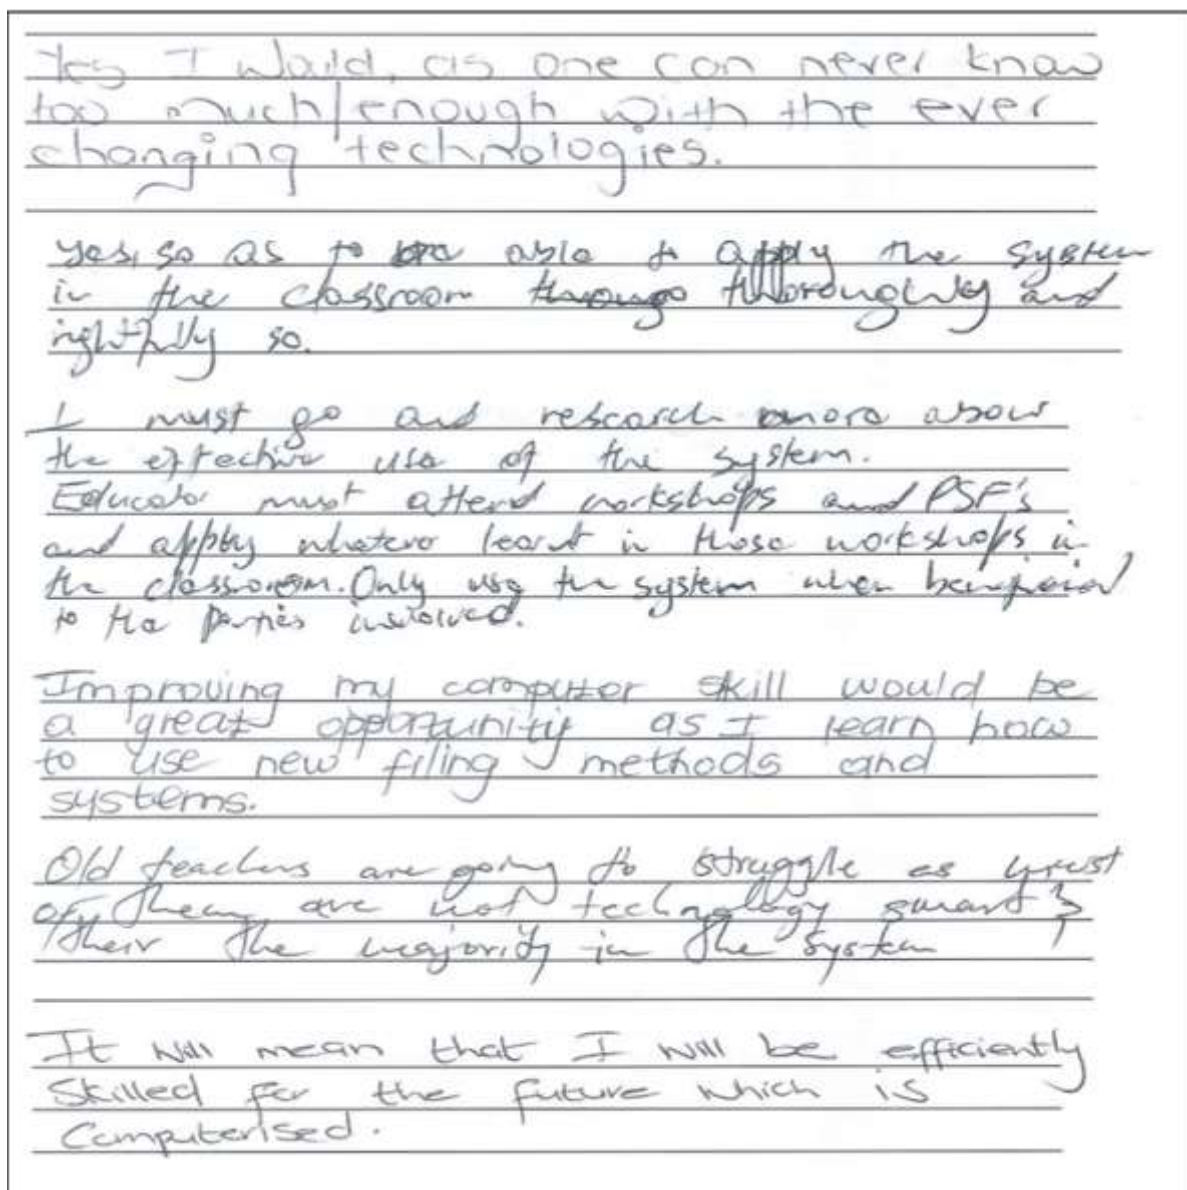 Yes I would, as one can never know
too much/enough with the ever
changing technologies.
Yes, so as to be able to apply the system
in the classroom thoroughly and
rightfully so.
I must go and research more about
the effective use of the system.
Educator must attend workshops and PSF's
and apply whatever learnt in those workshops in
the classroom. Only use the system when beneficial
to the parties involved.
Improving my computer skill would be
a great opportunity as I learn how
to use new filing methods and
systems.
Old teachers are going to struggle as most
of them are not technology smart &
their the majority in the system
It will mean that I will be efficiently
skilled for the future which is
Computerised.